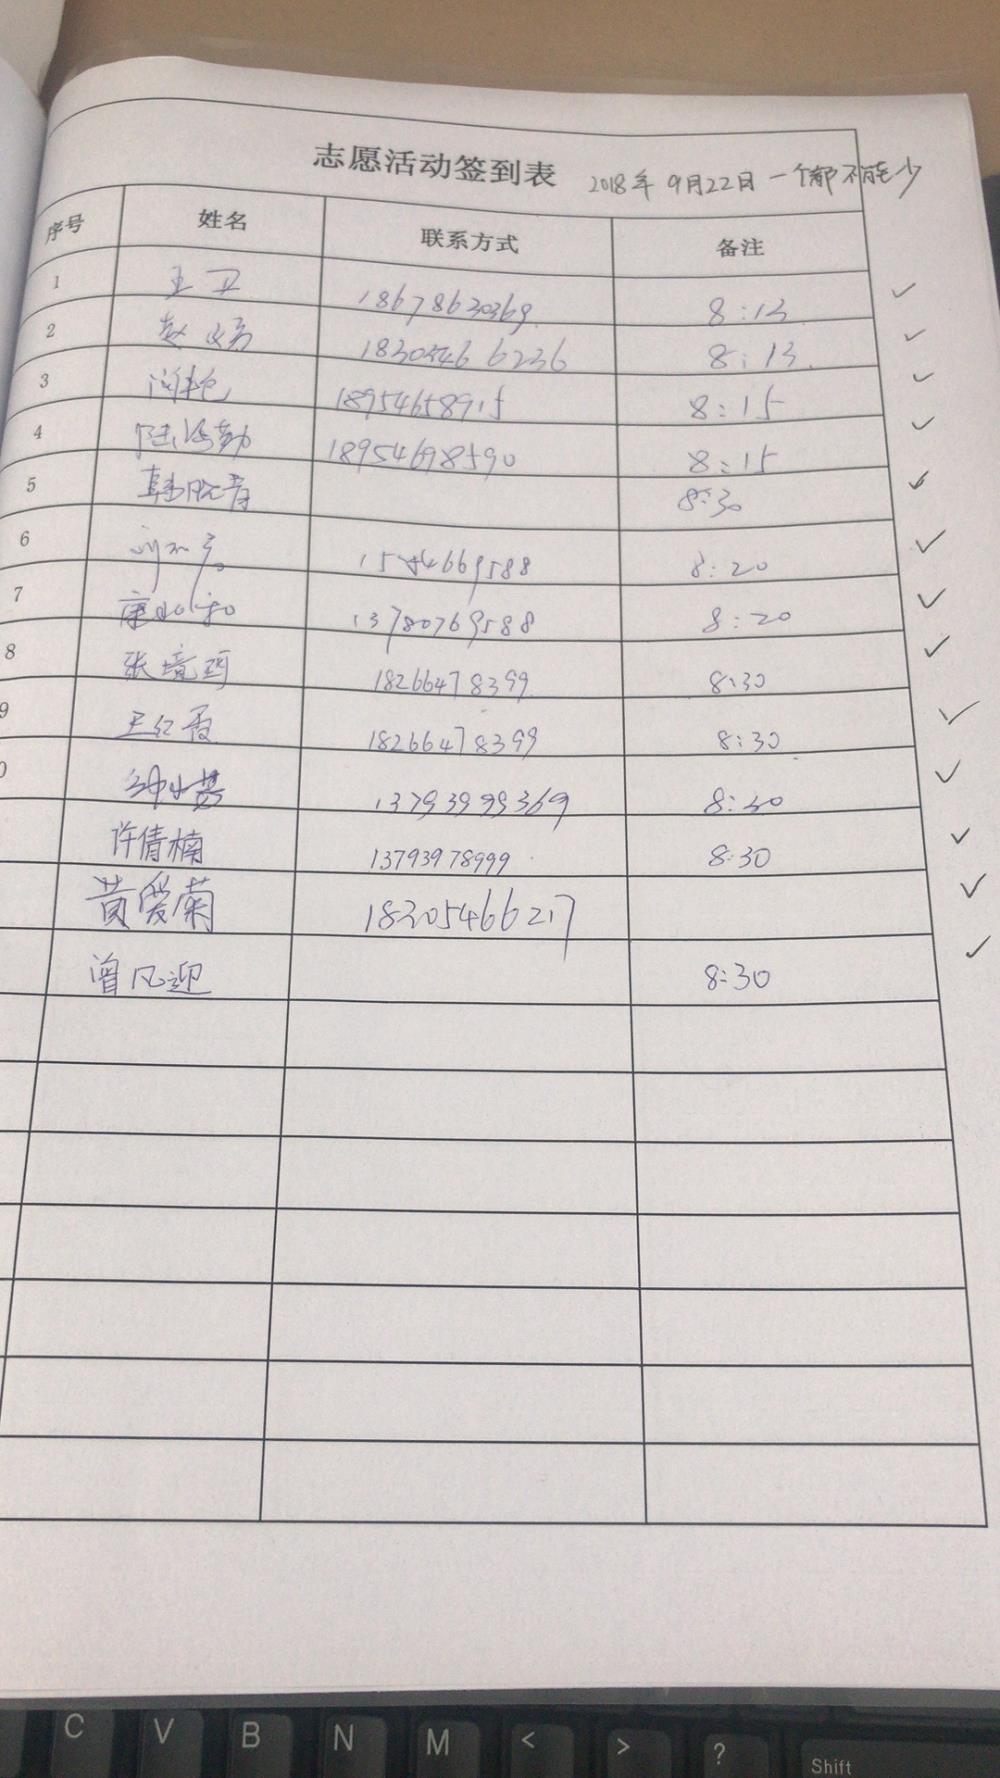 志愿活动签到表 2018年9月22日 一个都不能少
序号 姓名 联系方式 备注
1 王卫 18678630369 8:13
2 赵 18305466236 8:13
3 18954658915 8:15
4 18954698590 8:15
5 韩晓青 8:30
6 8:20
7 康 13780769588 8:20
8 张境 18266478399 8:30
9 王红霞 18266478399 8:30
0 13793999369 8:30
许倩楠 13793978999 8:30
黄爱菊 18305466217
曾凡迎 8:30
C V B N M < > ? Shift